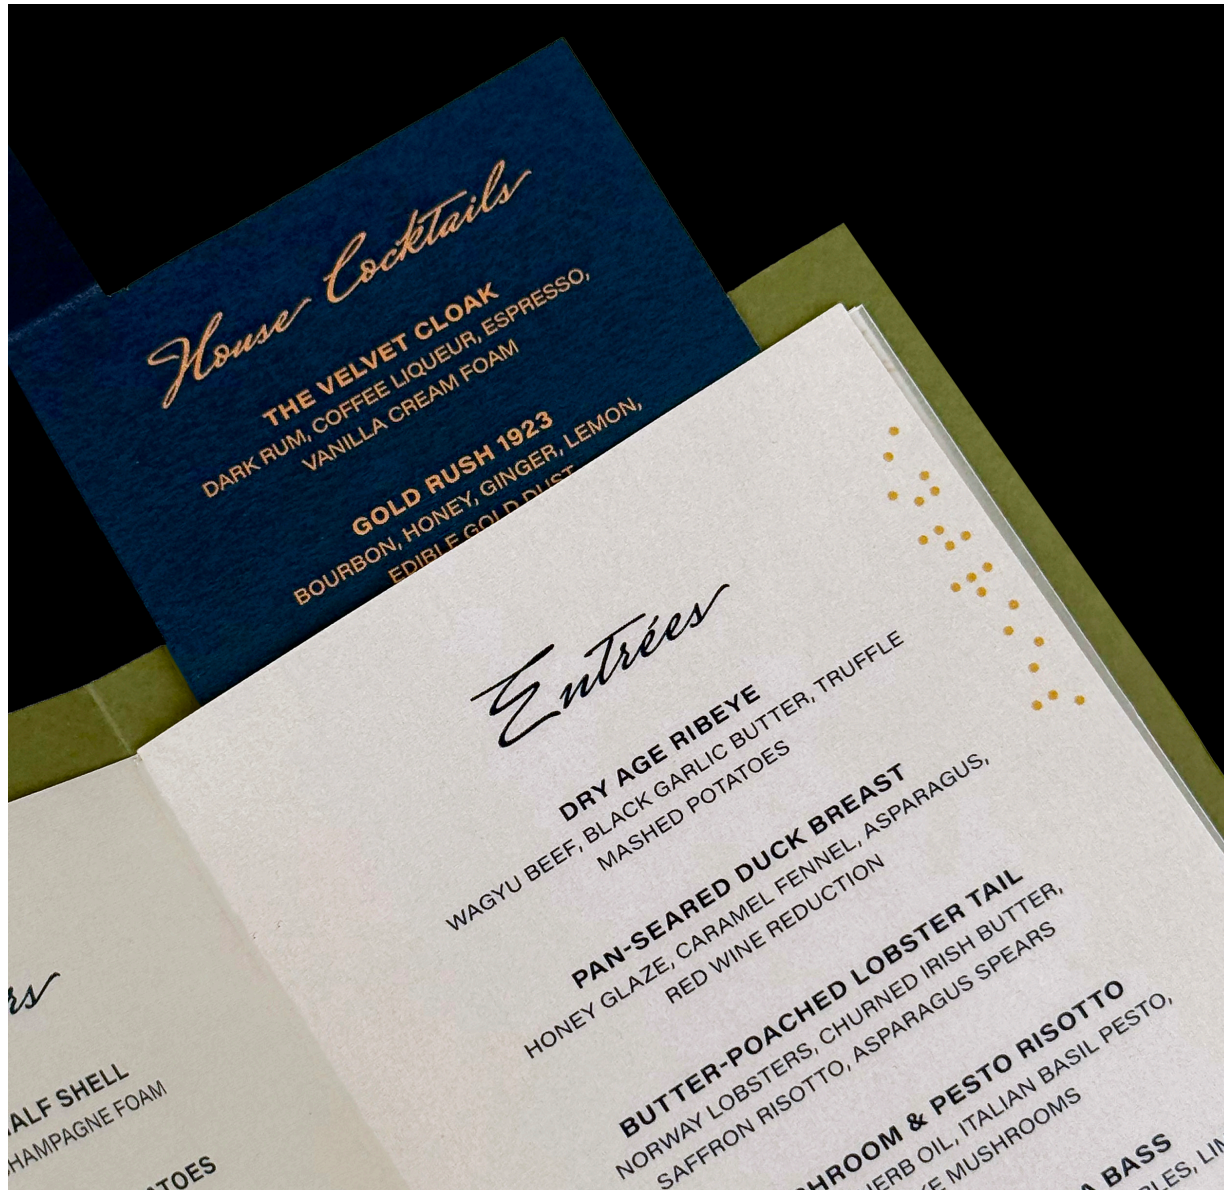 House Cocktails
THE VELVET CLOAK
DARK RUM, COFFEE LIQUEUR, ESPRESSO,
VANILLA CREAM FOAM
GOLD RUSH 1923
BOURBON, HONEY, GINGER, LEMON,
EDIBLE GOLD DUST
Entrées
DRY AGE RIBEYE
WAGYU BEEF, BLACK GARLIC BUTTER, TRUFFLE
MASHED POTATOES
PAN-SEARED DUCK BREAST
HONEY GLAZE, CARAMEL FENNEL, ASPARAGUS,
RED WINE REDUCTION
BUTTER-POACHED LOBSTER TAIL
NORWAY LOBSTERS, CHURNED IRISH BUTTER,
SAFFRON RISOTTO, ASPARAGUS SPEARS
& PESTO RISOTTO
HERB OIL, ITALIAN BASIL PESTO,
MUSHROOMS
BASS
HALF SHELL
CHAMPAGNE FOAM